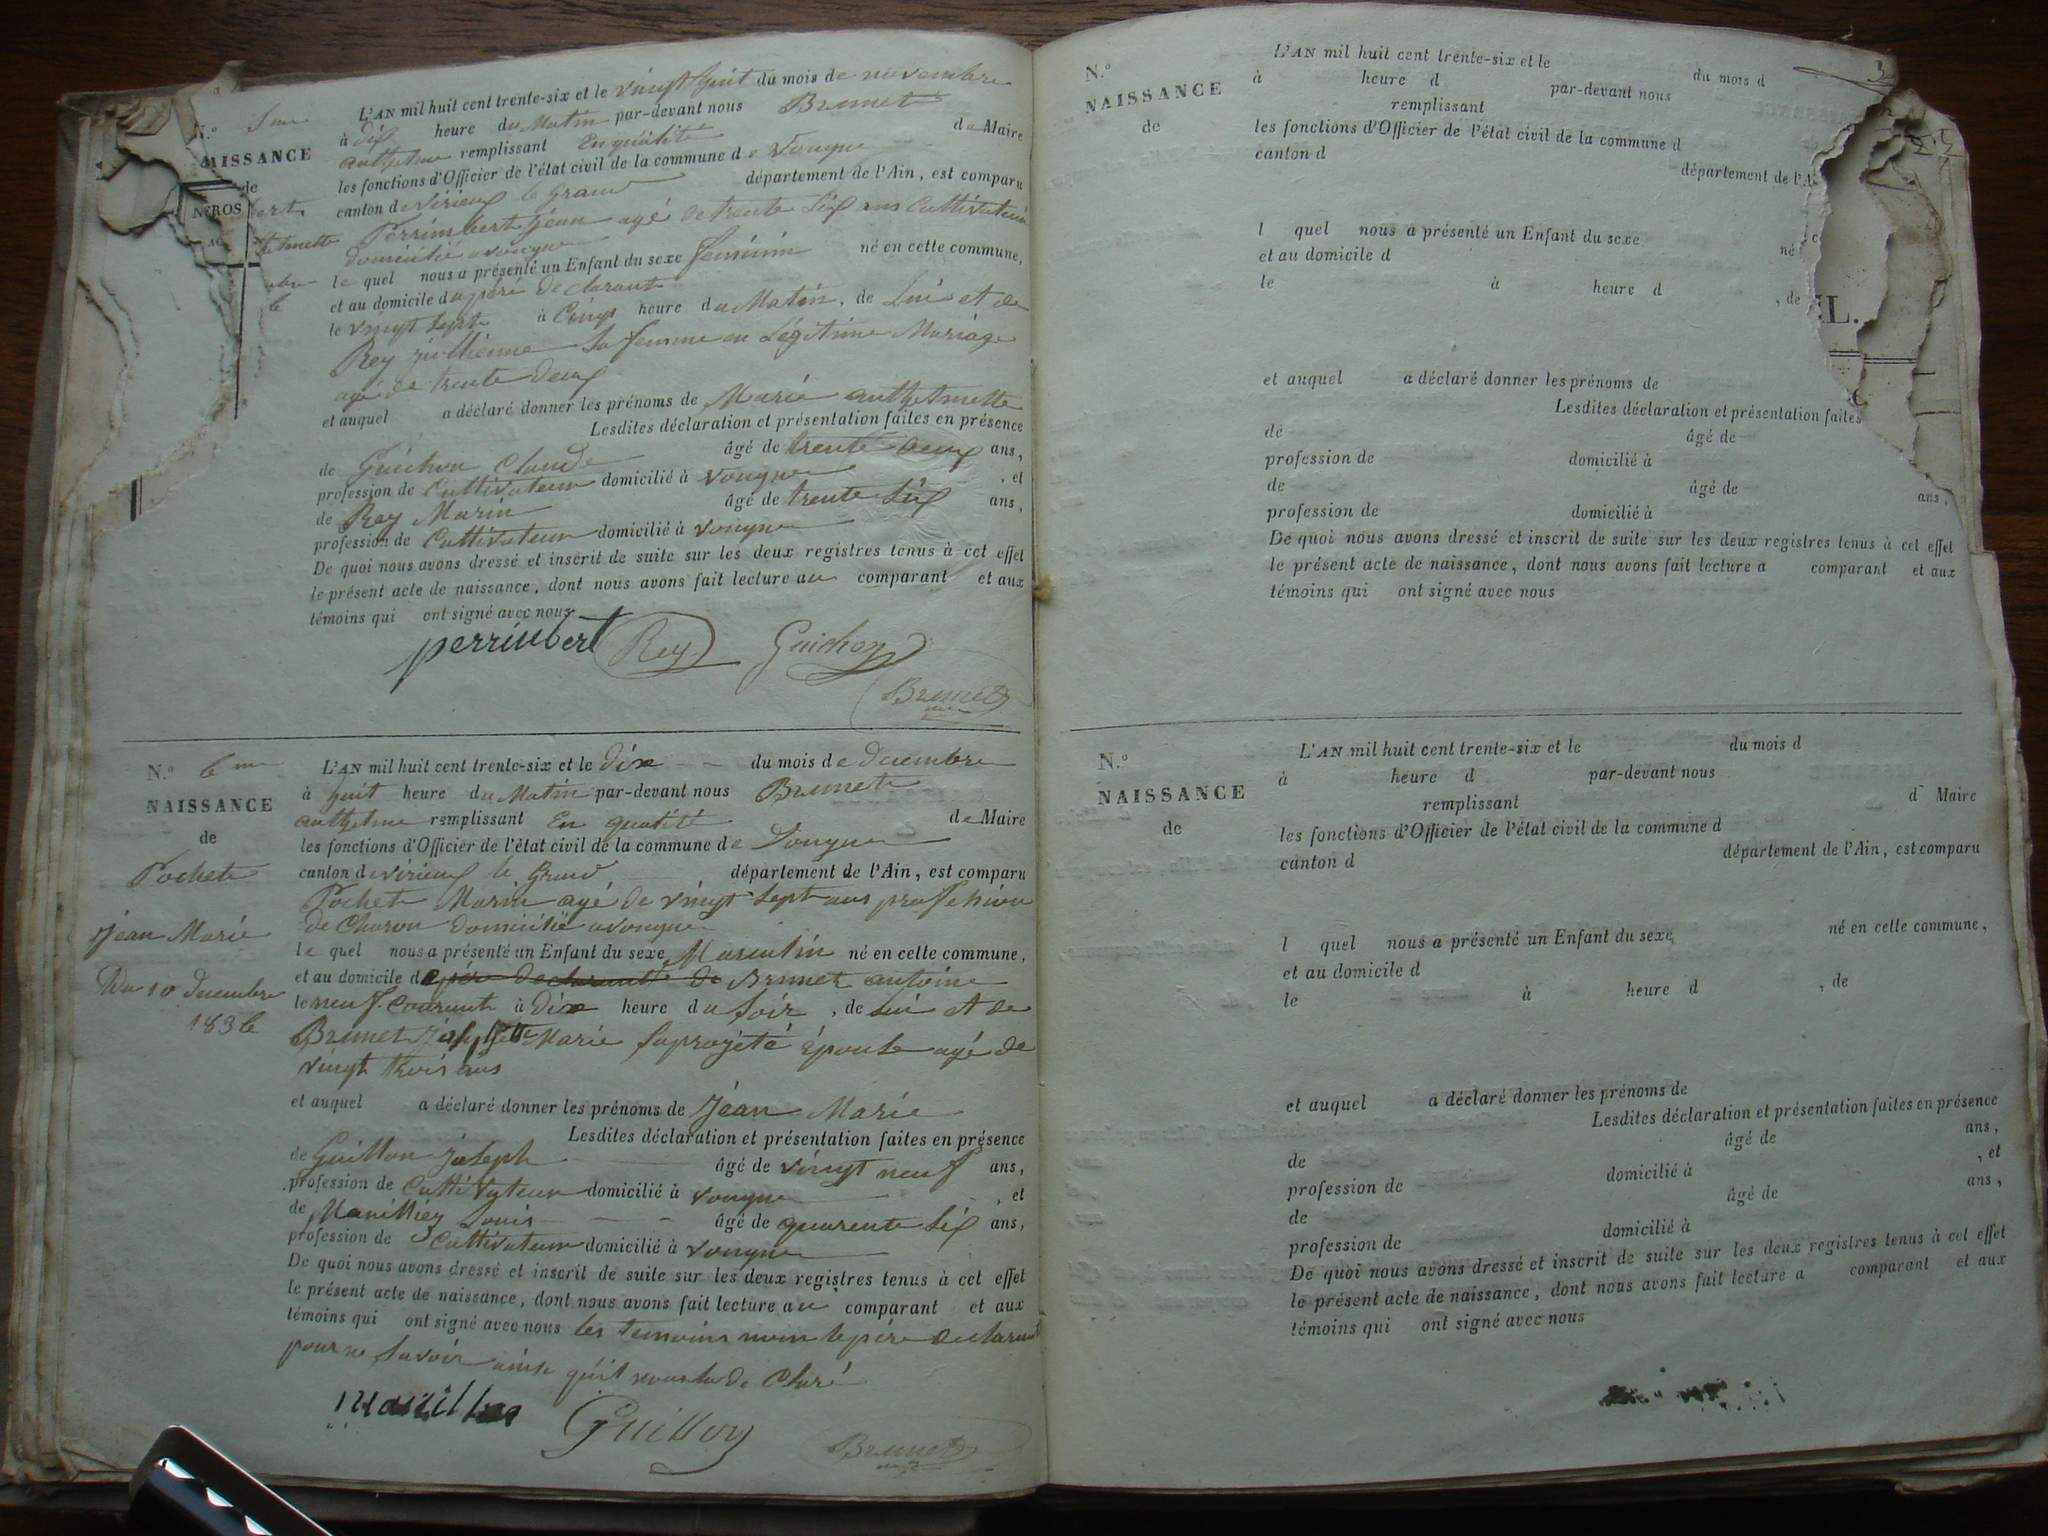 N.° 5me
NAISSANCE
de
L'AN mil huit cent trente-six et le vingt huit du mois de novembre
à dix heure du Matin par-devant nous Brunet
anthelme remplissant En qualité de Maire
les fonctions d'Officier de l'état civil de la commune de Vongne
canton de virieux le Grand département de l'Ain, est comparu
Perrimbert jean agé de trente Six ans Cultivateur
domicilié a vongne
le quel nous a présenté un Enfant du sexe feminin né en cette commune,
et au domicile du père declarant
le vingt Sept à Cinq heure du Matin, de Lui et de
Rey jullienne Sa femme en Légitime Mariage
agé de trente deux
et auquel a déclaré donner les prénoms de Marie anthelmette
Lesdites déclaration et présentation faites en présence
de Guichon Claude âgé de trente deux ans,
profession de Cultivateur domicilié à vongne, et
de Rey Marin âgé de trente Six ans,
profession de Cultivateur domicilié à vongne
De quoi nous avons dressé et inscrit de suite sur les deux registres tenus à cet effet
le présent acte de naissance, dont nous avons fait lecture au comparant et aux
témoins qui ont signé avec nous
perrimbert Rey Guichon
Brunet
N.° 6me
NAISSANCE
de
Pochet
jean Marie
Du 10 Decembre
1836
L'AN mil huit cent trente-six et le dix du mois de decembre
à huit heure du Matin par-devant nous Brunet
anthelme remplissant En qualité de Maire
les fonctions d'Officier de l'état civil de la commune de Vongne
canton de virieux le Grand département de l'Ain, est comparu
Pochet Marin agé de vingt Sept ans profession
de Charon domicilié a vongne
le quel nous a présenté un Enfant du sexe Masculin né en cette commune,
et au domicile de père declarant de Brunet antoine
le neuf courant à Dix heure du Soir, de Lui et de
Brunet Marie épouse agé de
vingt trois ans
et auquel a déclaré donner les prénoms de jean Marie
Lesdites déclaration et présentation faites en présence
de Guillon joseph âgé de vingt neuf ans,
profession de Cultivateur domicilié à vongne, et
de Louis âgé de quarente Six ans,
profession de Cultivateur domicilié à vongne
De quoi nous avons dressé et inscrit de suite sur les deux registres tenus à cet effet
le présent acte de naissance, dont nous avons fait lecture au comparant et aux
témoins qui ont signé avec nous les temoins non le père declarant
pour ne Savoir ainsi qu'il nous la de Claré
Guillon
Brunet
3
N.°
NAISSANCE
de
L'AN mil huit cent trente-six et le du mois d
à heure d par-devant nous
remplissant
les fonctions d'Officier de l'état civil de la commune d
canton d département de l'A
l quel nous a présenté un Enfant du sexe né
et au domicile d
le à heure d , de
et auquel a déclaré donner les prénoms de
Lesdites déclaration et présentation faites
de âgé de
profession de domicilié à
de âgé de ans,
profession de domicilié à
De quoi nous avons dressé et inscrit de suite sur les deux registres tenus à cet effet
le présent acte de naissance, dont nous avons fait lecture a comparant et aux
témoins qui ont signé avec nous
N.°
NAISSANCE
de
L'AN mil huit cent trente-six et le du mois d
à heure d par-devant nous
remplissant d Maire
les fonctions d'Officier de l'état civil de la commune d
canton d département de l'Ain, est comparu
l quel nous a présenté un Enfant du sexe né en cette commune,
et au domicile d
le à heure d , de
et auquel a déclaré donner les prénoms de
Lesdites déclaration et présentation faites en présence
de âgé de ans,
profession de domicilié à , et
de âgé de ans,
profession de domicilié à
De quoi nous avons dressé et inscrit de suite sur les deux registres tenus à cet effet
le présent acte de naissance, dont nous avons fait lecture a comparant et aux
témoins qui ont signé avec nous